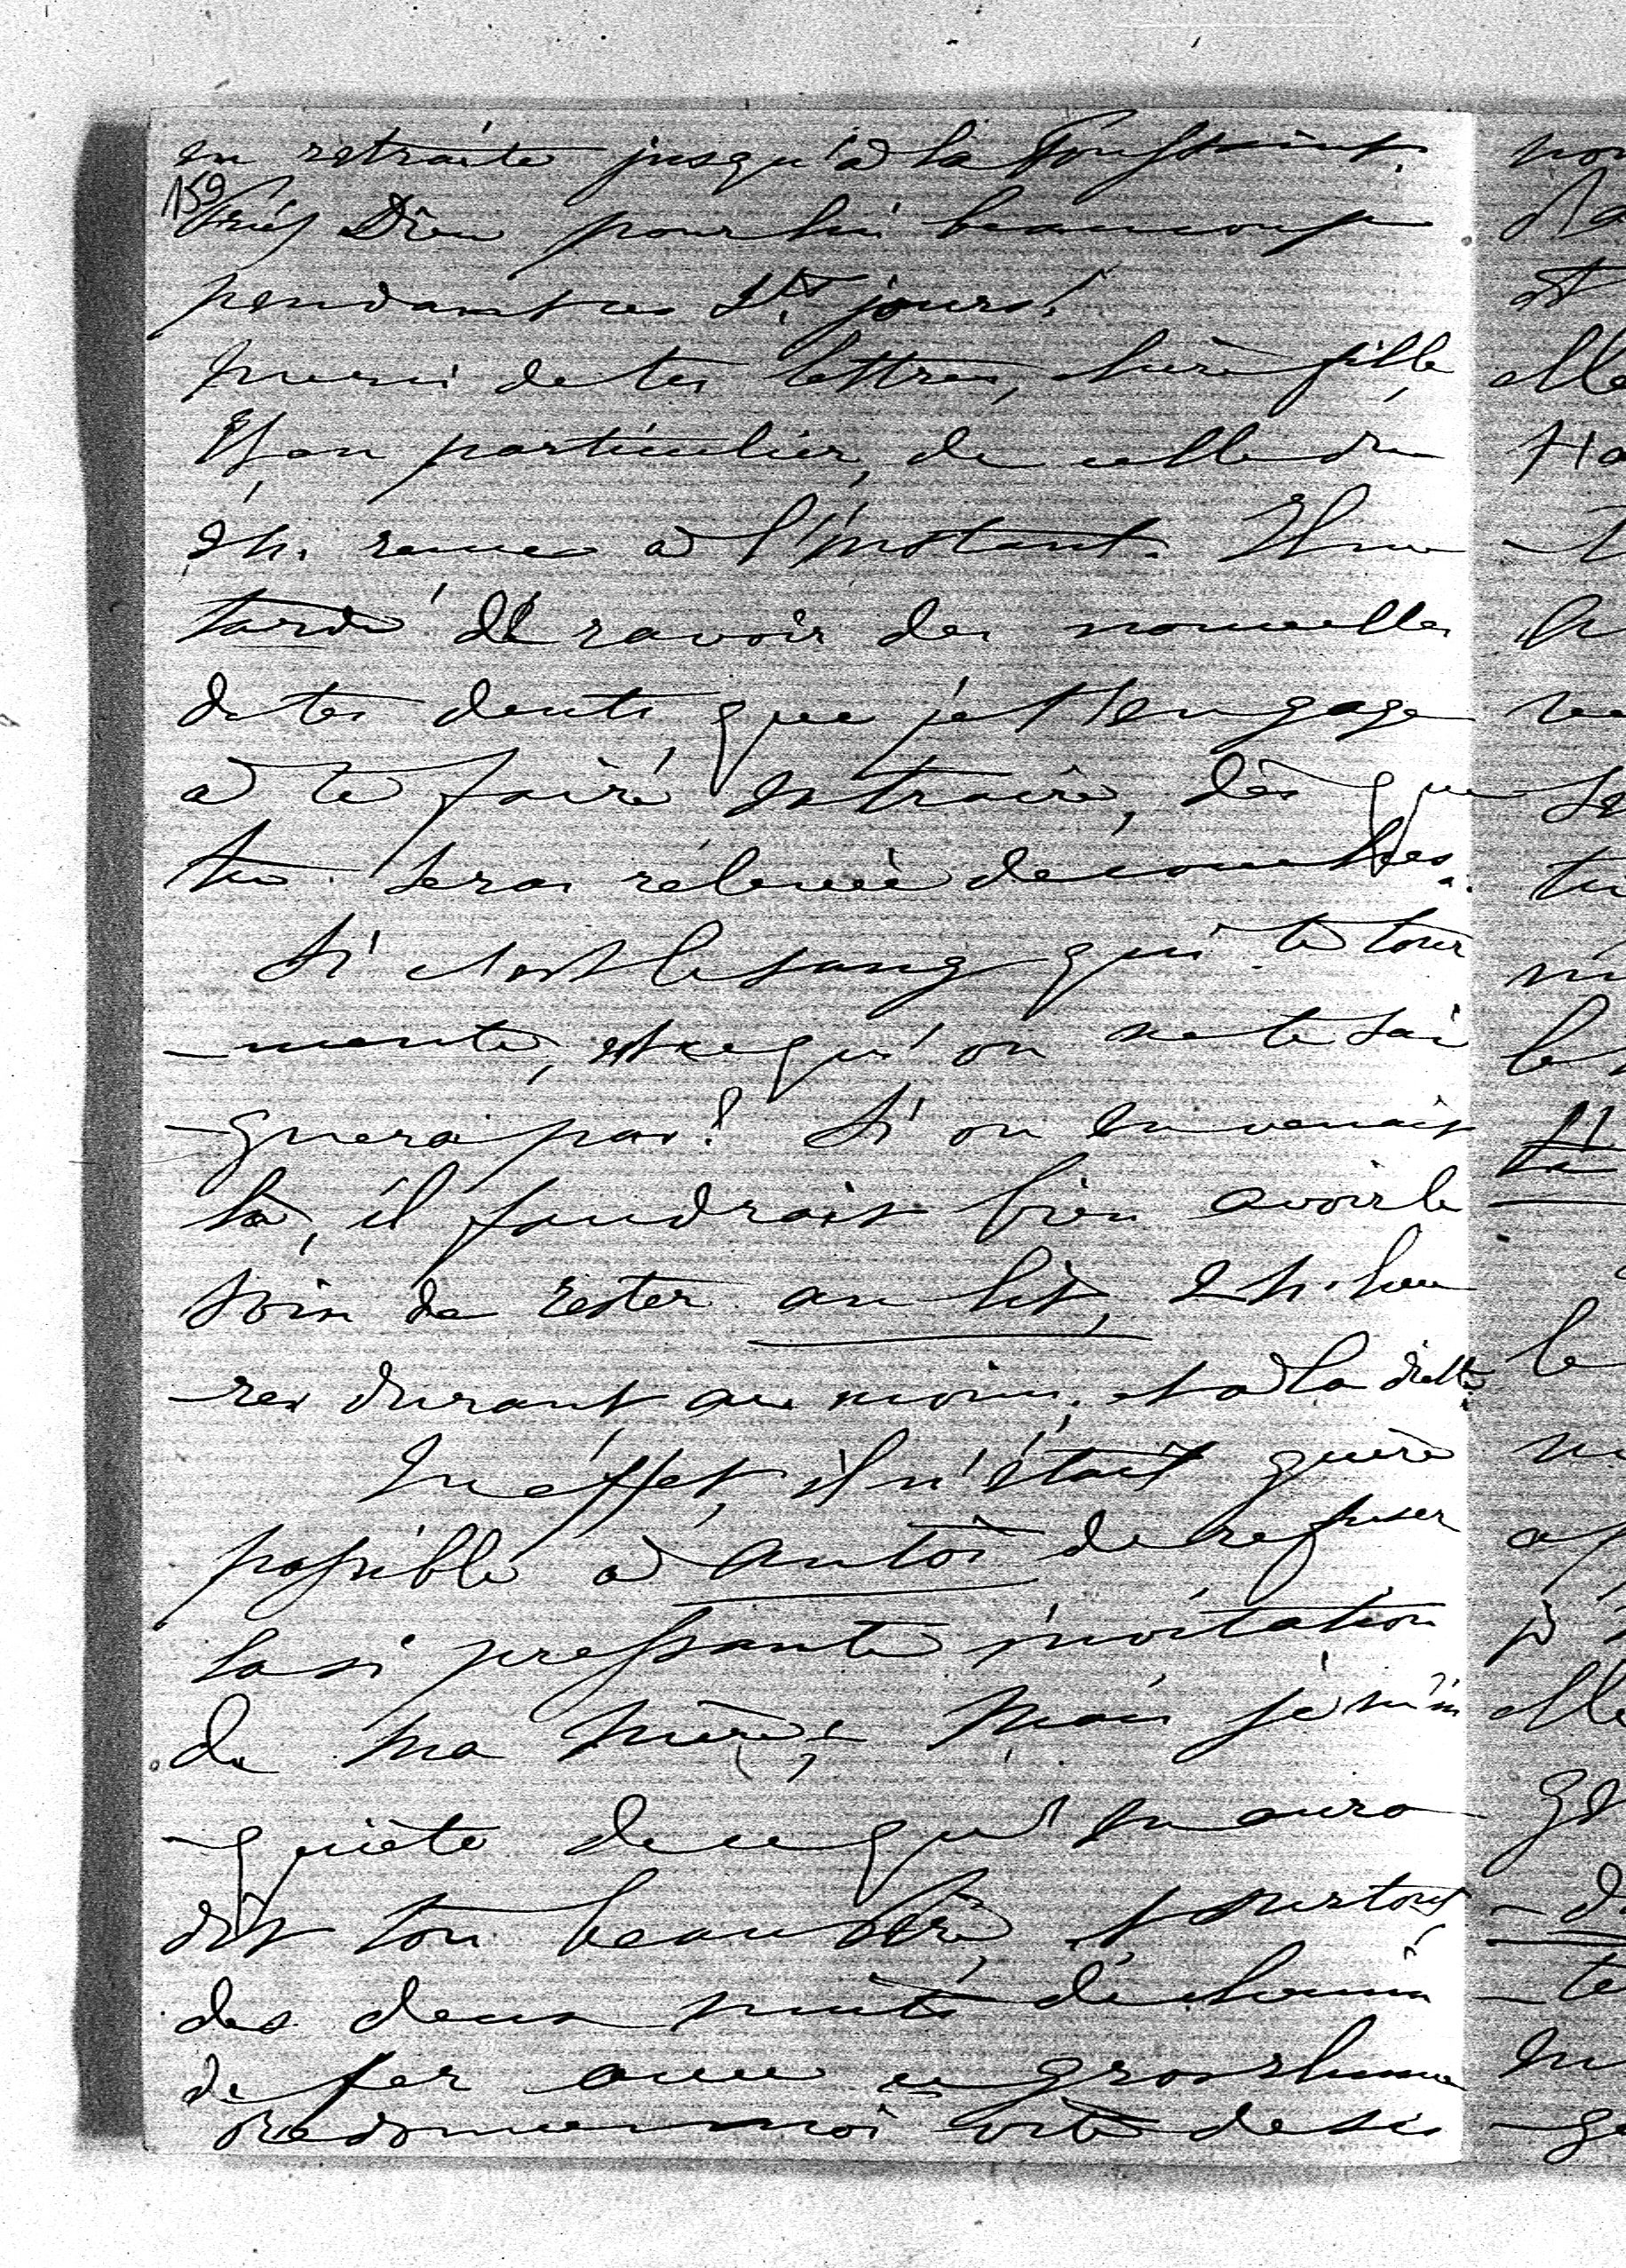 en retraite jusqu'à la Toussaint.
159
Priez Dieu pour lui beaucoup
pendant ces Sts jours!
merci de tes lettres, chère fille
Et en particulier, de celle du
24. reçue à l'instant. Il me
tarde de ravoir des nouvelles
de tes dents que je t'engage
à te faire extraire, dès que
tu seras relevée de couches.
Si c'est le sang qui te tour
-mente, est ce qu'on ne te sai
-gnera pas? Si on en venait
là, il faudrait bien avoir le
soin de rester au lit, 24. heu
-res durant au moins, et à la diète.
En effet, il n'était guère
possible à Antoi de refuser
la si pressante invitation
de ma mère; Mais je m'in
-quiète de ce qu'en aura
dit ton beau père, et surtout
des deux nuits de chemin
de fer avec ce gros rhume
redonne moi vite de ses
nou
elle
le
tu